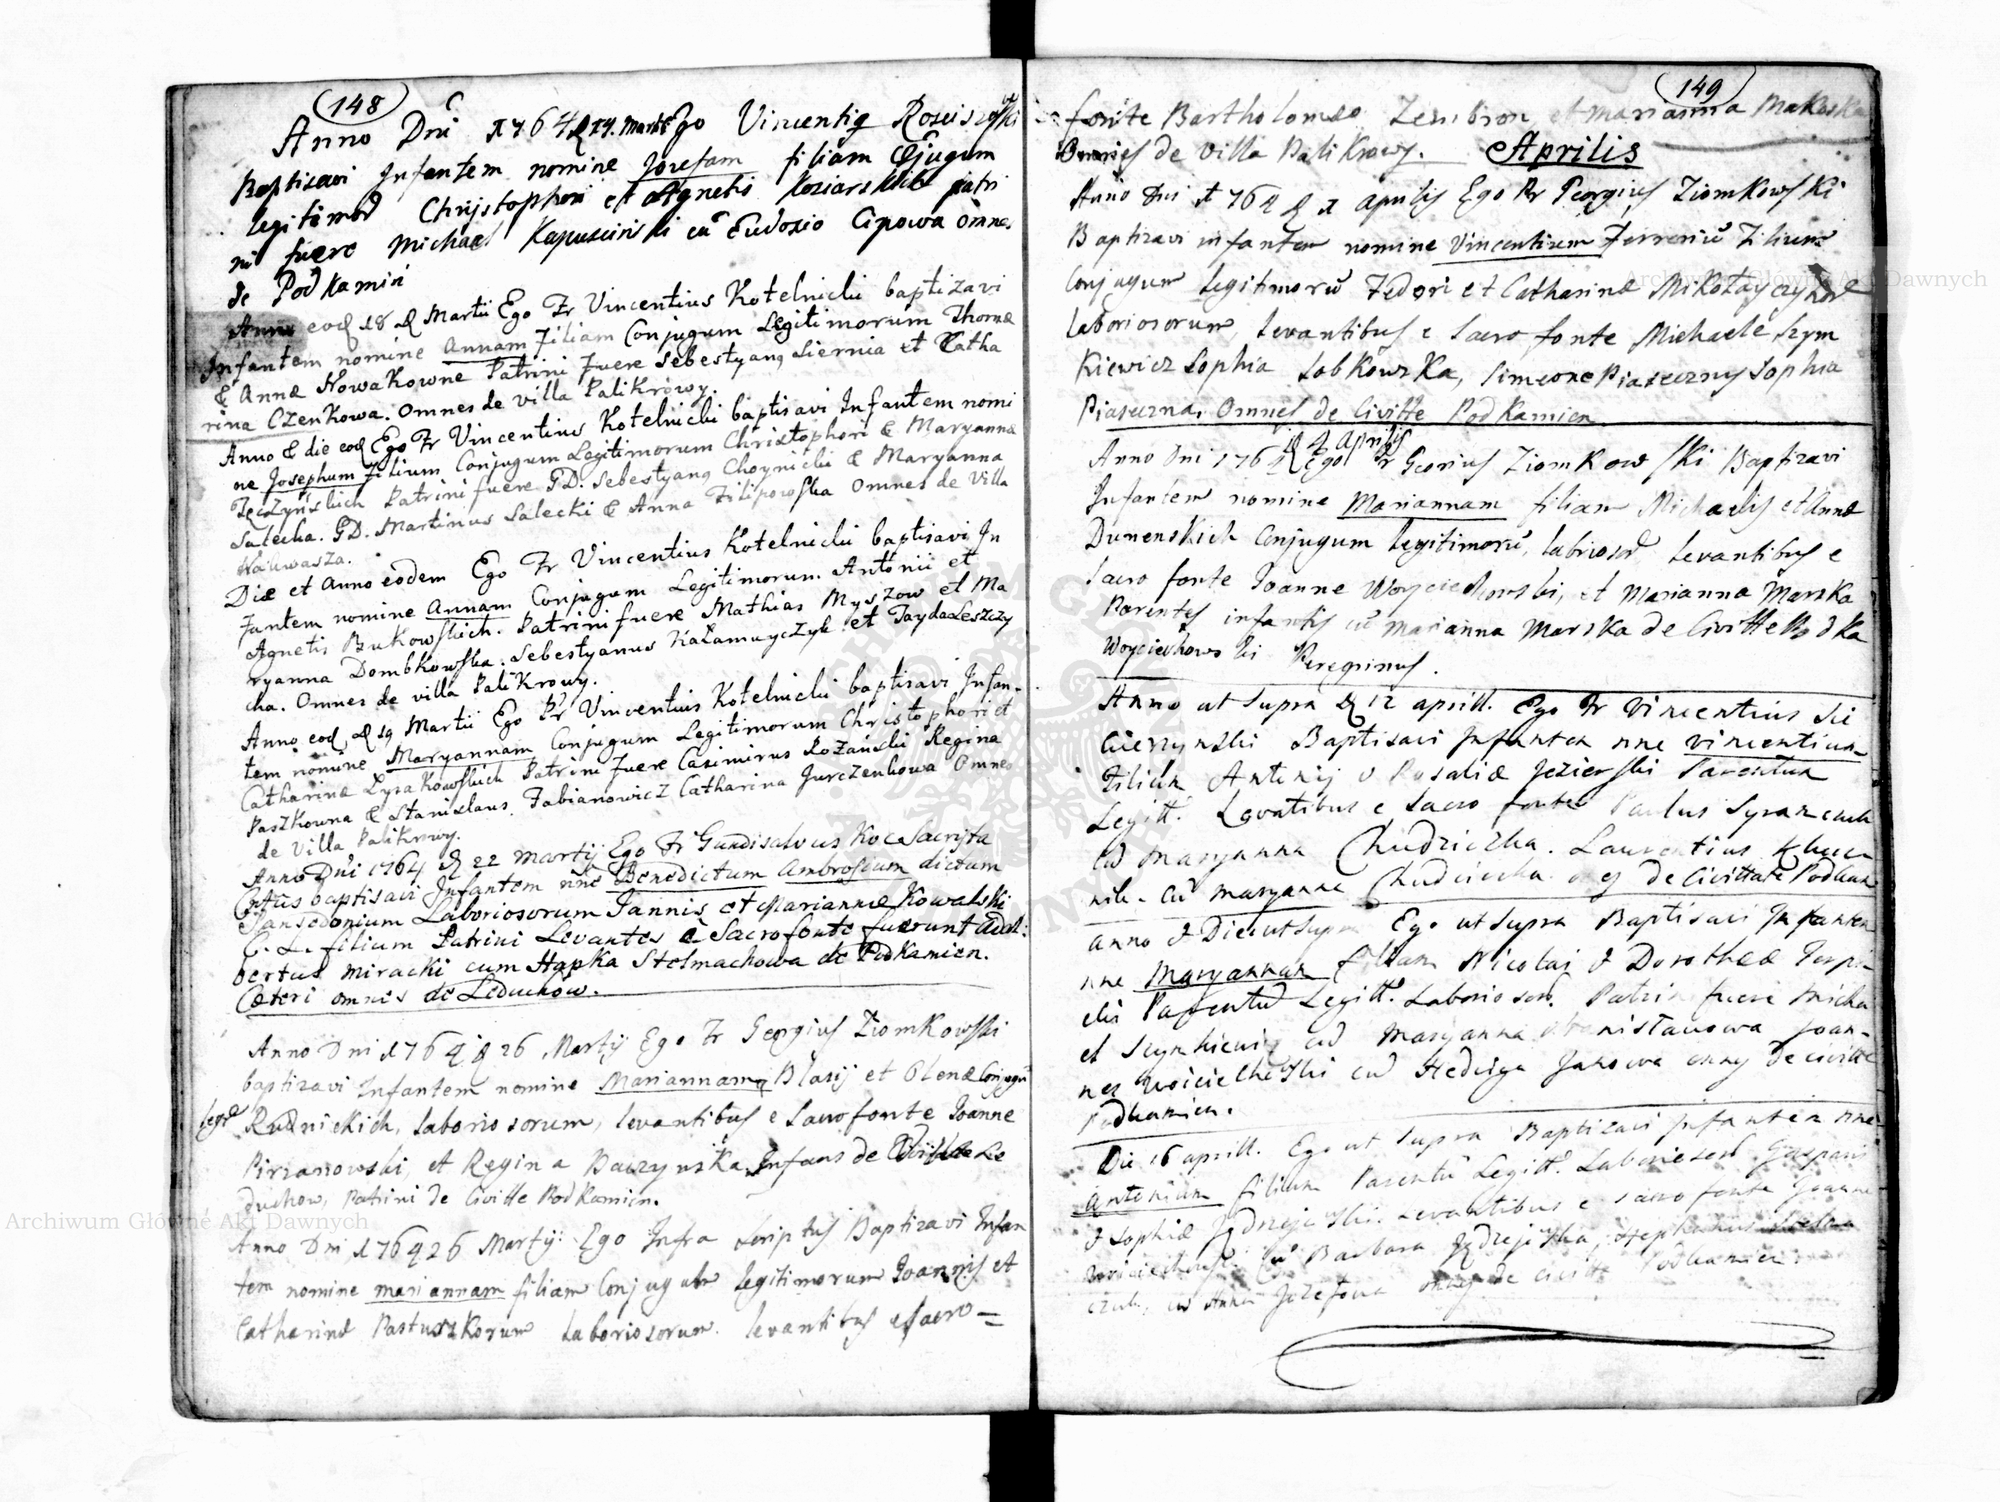 148
Anno Dni 1764 d 14. Martii Ego Vincentiq Rosciszewski
Baptisavi Infantem nomine Josefam filiam Cjugum
legitimor Christophori et Agnetis Koziarskich patri
ni fuere Michael Kapuscinski cu Eudoxio Cipowa omnes
de Podkamin
Anno eod 18 d Martii Ego Fr Vincentius Kotelnicki baptizavi
Infantem nomine Annam Filiam Conjugum Legitimorum Thomæ
& Annæ Nowakowne Patrini Fuere Sebestyanq Siernia et Catha
rina Czenkowa. Omnes de villa Palikrowy.
Anno & die eod Ego Fr Vincentius Kotelnicki baptisavi Infantem nomi
ne Josephum Filium Conjugum Legitimorum Christophori & Maryannæ
Tęczyńskich Patrini fuere GD. Sebestyanq Choynicki & Maryanna
Salecka. GD. Martinus Salecki & Anna Filipowska Omnes de Villa
Nakwasza.
Die et Anno eodem Ego Fr Vincentius Kotelnicki baptisavi In
fantem nomine Annam Conjugum Legitimorum Antonii et
Agnetis Bukowskich. Patrini fuere Mathias Myszow et Ma
ryanna Dombkowska. Sebestyanus Kałamayczyk et Tayda Leszczy
cha. Omnes de villa Palikrowy.
Anno eod d 19 Martii Ego Fr Vincentius Kotelnicki baptisavi Infan-
tem nomine Maryannam Conjugum Legitimorum Christophori et
Catharinæ Łysakowskich Patrini Fuere Casimirus Rożański Regina
Paszkowna & Stanislaus Fabianowicz Catharina Jurczenkowa Omnes
de Villa Palikrowy.
Anno Dni 1764 d 22 Martij Ego Fr Gundisalvus Koc Sacrista
Cntus baptisavi Infantem nne Benedictum Ambrosium dictum
Sansedonium Laboriosorum Jannis et Mariannæ Kowalski
C. L. filium Patrini Levantes e Sacro fonte fuerunt Adal:
bertus Miracki cum Hapka Stelmachowa de Podkamien.
Cæteri omnes de Leduchow.
Anno Dni 1764 d 26 Martij Ego Fr Georgius Ziomkowski
baptizavi Infantem nomine Mariannam Blasij et Olenæ Conjugu
legr Rudnickich, laboriosorum, levantibus e Sacro fonte Joanne
Pirzanowski, et Regina Baczynska Infans de Le
duchow, Patrini de Civitte Podkamien.
Anno Dni 1764 26 Martij Ego Infra Scriptus Baptizavi Infan
tem nomine mariannam filiam Conjugum legitimorum Joannis et
Catharinæ Pastuszkorum Laboriosorum. levantibus e Sacro =
149
fonte Bartholomeo Zembron et Marianna Makoska
Omnes de Villa Palikrowy. Aprilis
Anno Dni 1764 d 1 aprilis Ego Fr Georgius Ziomkowski
Baptizavi infantem nomine Vincentium Ferreriu Filium
Conjugum legitimoru Fedori et Catharinæ Mikołayczykow
laboriosorum, levantibus e Sacro fonte Michaele Szym
kiewicz Sophia Sobkowska, Simeone Piaseczny Sophia
Piaseczna, Omnes de Civitte Podkamien.
d 4 Aprilis
Anno Dni 1764 Ego Fr Georius Ziomkowski Baptizavi
Infantem nomine Mariannam filiam Michaelis et Annæ
Dunenskich Conjugum legitimoru, labriosor levantibus e
Sacro fonte Joanne Woyciechowski, et Marianna Marska
Parentes infantis cu Marianna Marska de Civitte Podka
Woyciechowski Peregrinus.
Anno ut Supra d 12 aprill. Ego Fr Vincentius Sie
cierzynski Baptisavi Infantem nne Vincentium
Filium Antonij & Rosaliæ Jezierski Parentum
Legitt. Levatibus e Sacro fonte Paulus
cu Maryanna Chudziczka. Laurentius
cu Maryanna Chudziecka. oes de Civittate Podkam
Anno & Die ut Supra Ego ut Supra Baptisavi Infantem
nne Maryannam filiam Nicolai & Dorotheæ
Parentu Legitt. Laboriosor. Patrini fuere Micha
el Szymkiewicz cu Maryanna Joan-
nes Woiciechowski cu Hedwiga Janowa omnes de civitte
Podkamien.
Die 16 aprill. Ego ut Supra Baptizavi Infantem nne
Antonium filium Parentu Legitt. Laboriosor Gaspari
& Sophiæ Jędrzejewski. Levantibus e Sacro fonte Joanne
Woiciechowski cu Barbara Jędrzejewska, Stephanus
cu Anna Jozefowa omnes de civitt Podkamien
Archiwum Główne Akt Dawnych
Archiwum Główne Akt Dawnych